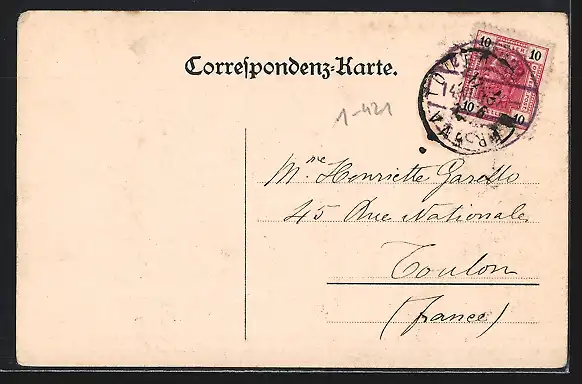 Correspondenz-Karte.
10 10
10 10
1-421
Mme Henriette Garollo
45 Rue Nationale
Toulon
(France)